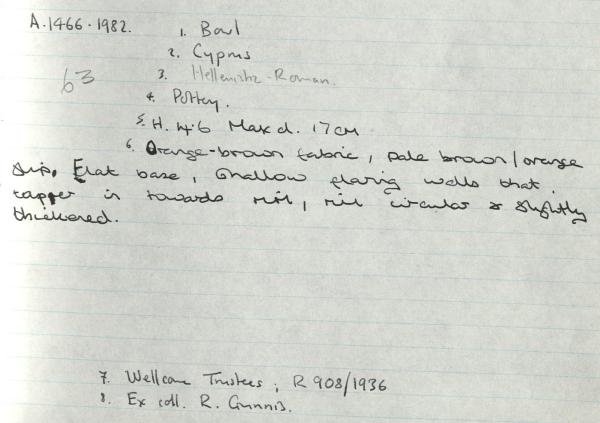 A.1466.1982.
1. Bowl
2. Cyprus
3. Hellenistic-Roman.
63
4. Pottery.
5. H. 4.6 Max d. 17cm
6. Orange-brown fabric, pale brown/orange
slip. Flat base, shallow flaring walls that
tapper in towards rim, rim circular & slightly
thickened.
7. Wellcome Trustees, R 908/1936
8. Ex coll. R. Gunnis.